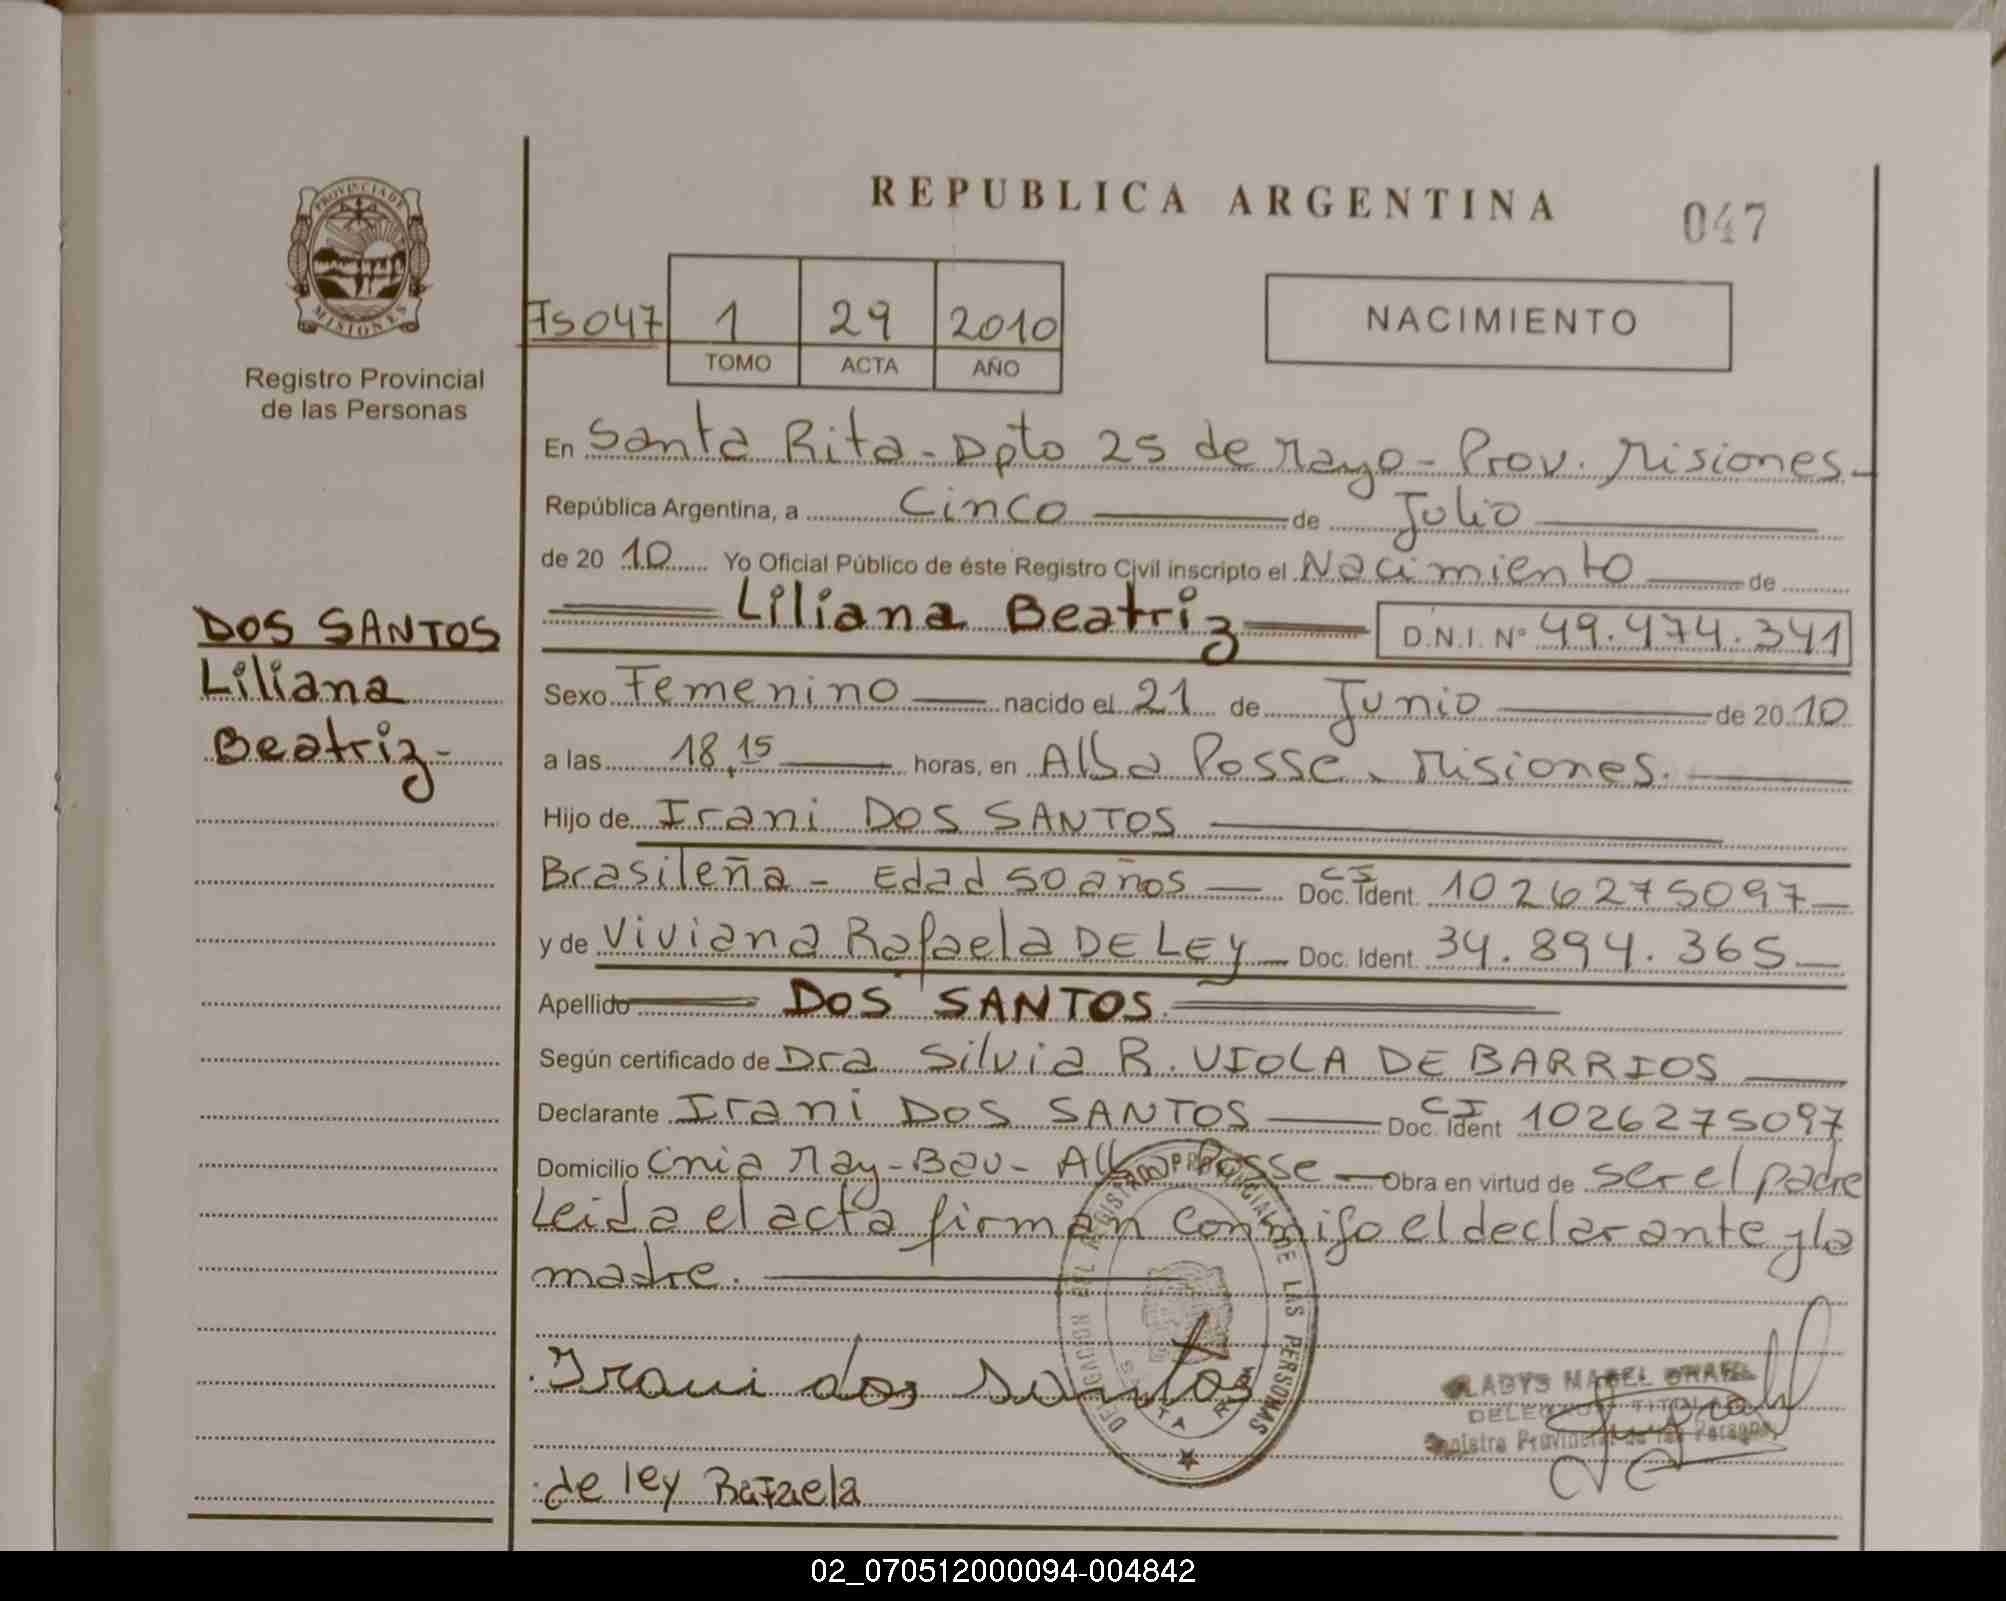 REPUBLICA ARGENTINA
047
PROVINCIA DE
MISIONES
Registro Provincial
de las Personas
Fs 047
1 29 2010
TOMO ACTA AÑO
NACIMIENTO
En Santa Rita - Dpto 25 de Mayo - Prov. Misiones -
República Argentina, a Cinco de Julio
de 20 10 Yo Oficial Público de éste Registro Civil inscripto el Nacimiento de
Liliana Beatriz D.N.I. Nº 49.474.341
DOS SANTOS
Liliana
Beatriz -
Sexo Femenino nacido el 21 de Junio de 20 10
a las 18,15 horas, en Alba Posse - Misiones.
Hijo de Irani DOS SANTOS
Brasileña - Edad 50 años - CI Doc. Ident. 1026275097
y de Viviana Rafaela DE LEY Doc. Ident. 34.894.365
Apellido DOS SANTOS
Según certificado de Dra Silvia R. VIOLA DE BARRIOS
Declarante Irani DOS SANTOS CI Doc. Ident 1026275097
Domicilio Cnia May-Bau - Alba Posse - Obra en virtud de ser el padre
Leida el acta firman conmigo el declarante y la
madre.
DELEGACION DEL REGISTRO PROVINCIAL DE LAS PERSONAS
SANTA RITA
Irani dos santos
GLADYS MABEL
DELEGADA TITULAR
Registro Provincial de las Personas
de ley Rafaela
02_070512000094-004842